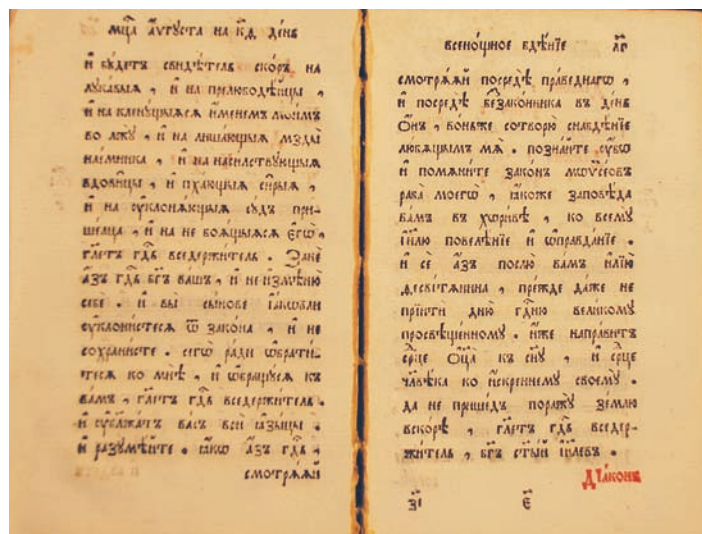 мц҃а а҆́ѵгуста на к҃д де́нь
и҆ бꙋ́детъ свидѣ́тель ско́ръ на
лꙋка́выѧ , и҆ на прелюбодѣ́йцы ,
и҆ на кленꙋ́щыѧсѧ и҆́менемъ мои́мъ
во лжꙋ̀ , и҆ на лиша́ющыѧ мзды̀
нае́мника , и҆ на наси́лствꙋющыѧ
вдови́цы , и҆ пха́ющыѧ си́рыѧ ,
и҆ на ᲂу҆клонѧ́ющыѧ сꙋ́дъ при-
ше́лца , и҆ на не боѧ́щыѧсѧ є҆гѡ̀ ,
гл҃етъ гд҇ь вседержи́тель . Занѐ
а҆́зъ гд҇ь бг҃ъ ва́шъ , и҆ не и҆змѣню̀
себѐ . и҆ вы̀ сы́нове і҆а́кѡвли
ᲂу҆клони́стесѧ ѿ зако́на , и҆ не
сохрани́сте . сегѡ̀ ра́ди ѡ҆брати́-
тесѧ ко мнѣ̀ , и҆ ѡ҆бращꙋ́сѧ къ
ва́мъ , гл҃етъ гд҇ь вседержи́тель .
и҆ ᲂу҆блажа́тъ ва́съ всѝ ꙗ҆зы́цы .
и҆ разꙋмѣ́йте . ꙗ҆́кѡ а҆́зъ гд҇ь ,
смотрѧ́ѧй
всено́щное бдѣ́нїе л҃г
смотрѧ́ѧй посредѣ̀ пра́веднагѡ ,
и҆ посредѣ̀ беззако́нника въ де́нь
ѻ҆́нъ , во́ньже сотворю̀ снабдѣ́нїе
лю́бѧщымъ мѧ̀ . позна́йте сꙋ́бѡ
и҆ помѧни́те зако́нъ мѡѷсе́овъ
раба̀ моегѡ̀ , ꙗ҆́коже заповѣ́да
ва́мъ въ хѡри́вѣ , ко всемꙋ̀
і҆и҃лю повелѣ́нїе и҆ ѡ҆правда́нїе .
и҆ сѐ а҆́зъ послю̀ ва́мъ и҆лїю̀
ѳесви́тѧнина , пре́жде да́же не
прїитѝ дню̀ гд҇ню вели́комꙋ
просвѣще́нномꙋ . и҆́же напра́витъ
се́рдце ѻ҆ц҃а̀ къ сн҃ꙋ , и҆ се́рдце
чл҃вѣ́ка ко и҆́скреннемꙋ своемꙋ̀ .
да не прише́дъ поражꙋ̀ зе́млю
вско́рѣ , гл҃етъ гд҇ь вседер-
жи́тель , бг҃ъ ст҃ы́й і҆и҃левъ .
Дїа́конъ
з҃і є҃